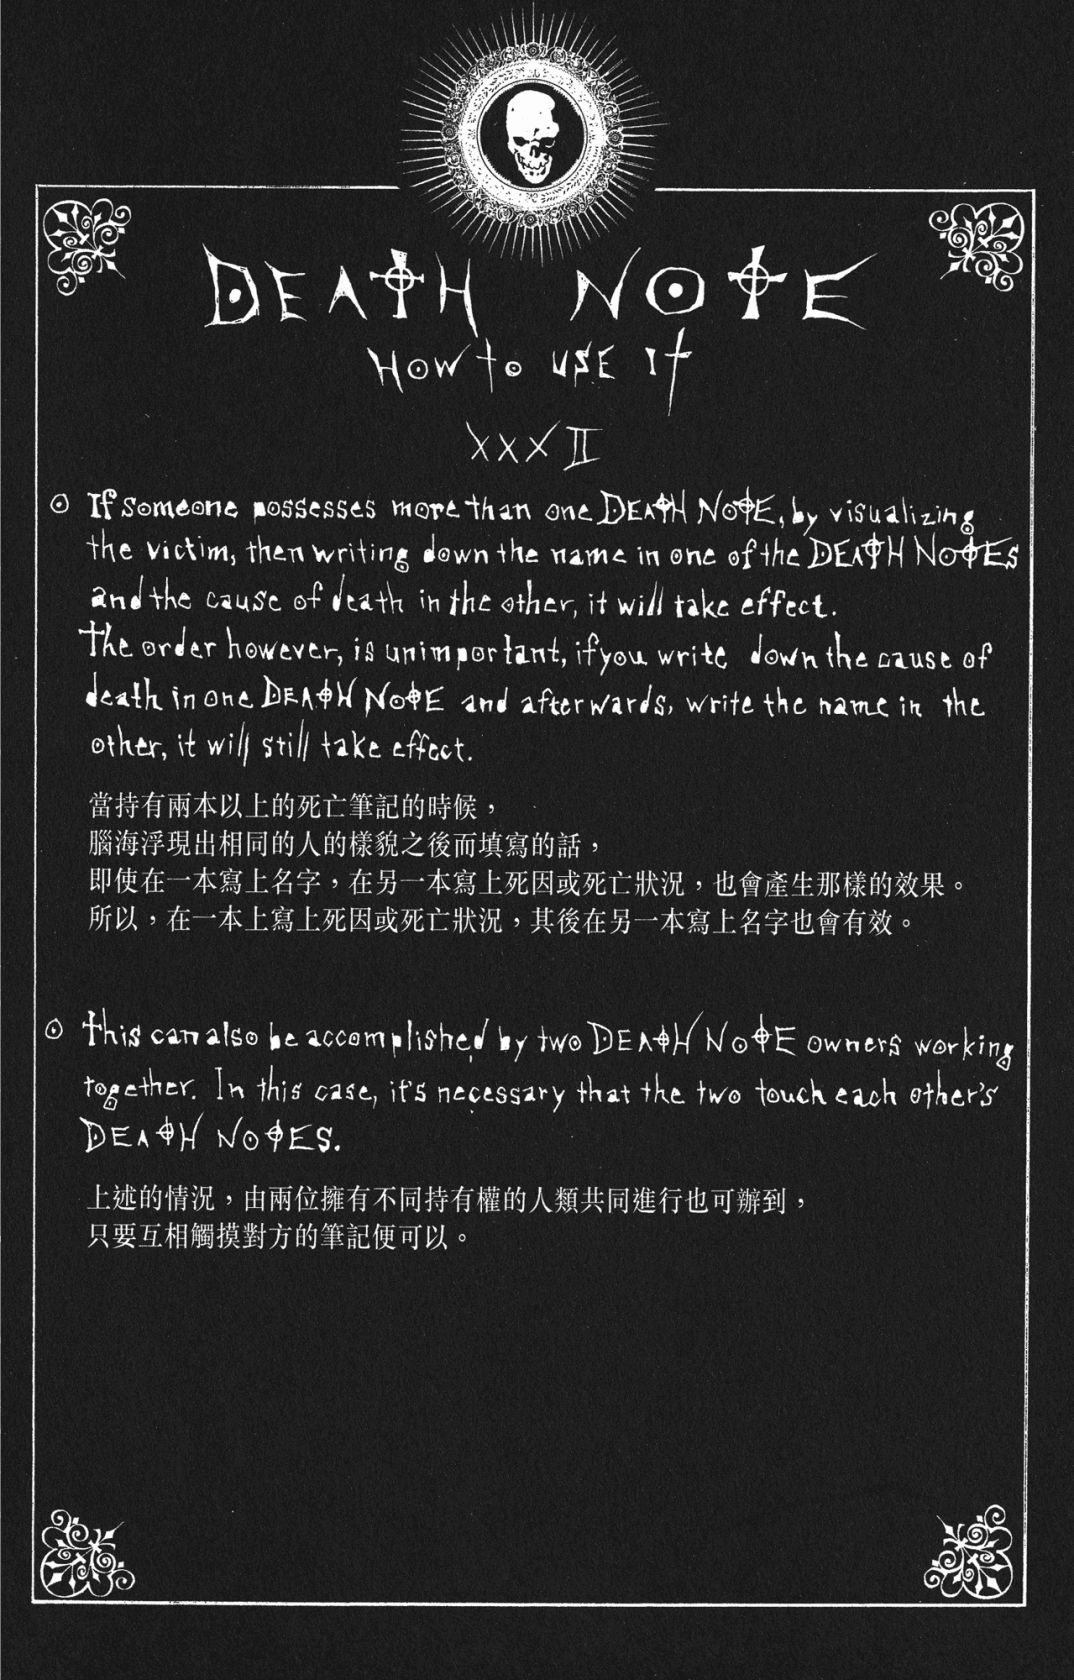 DEATH NOTE
HOW to USE It
XXXII
If someone possesses more than one DEATH NOTE, by visualizing
the victim, then writing down the name in one of the DEATH NOTES
and the cause of death in the other, it will take effect.
The order however, is unimportant, if you write down the cause of
death in one DEATH NOTE and afterwards, write the name in the
other, it will still take effect.
當持有兩本以上的死亡筆記的時候，
腦海浮現出相同的人的樣貌之後而填寫的話，
即使在一本寫上名字，在另一本寫上死因或死亡狀況，也會產生那樣的效果。
所以，在一本上寫上死因或死亡狀況，其後在另一本寫上名字也會有效。
This can also be accomplished by two DEATH NOTE owners working
together. In this case, it's necessary that the two touch each other's
DEATH NOTES.
上述的情況，由兩位擁有不同持有權的人類共同進行也可辦到，
只要互相觸摸對方的筆記便可以。